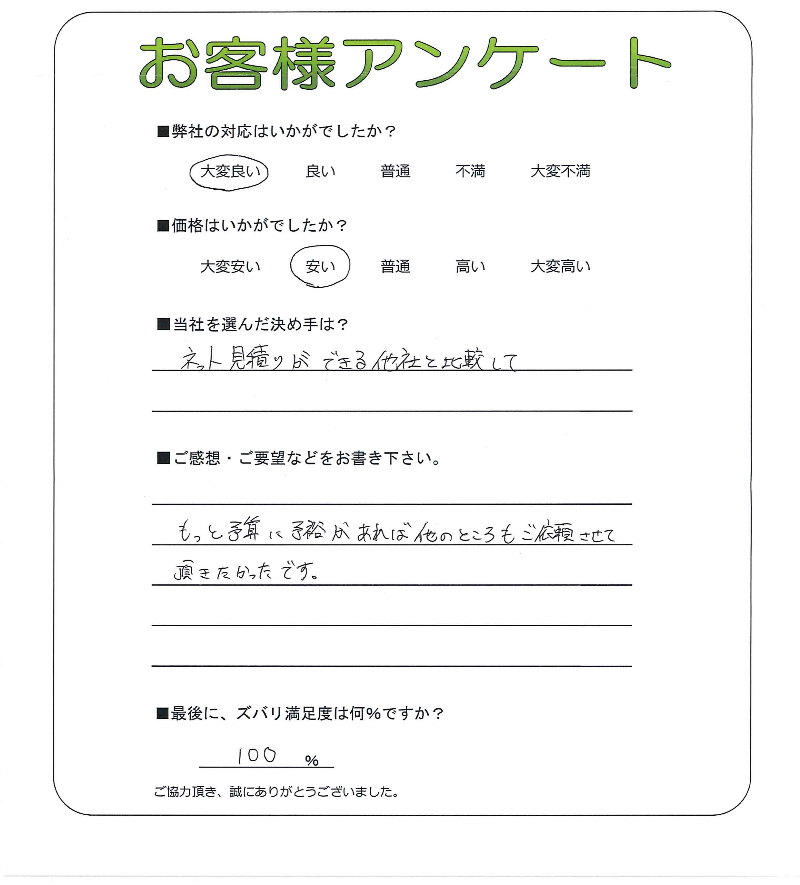 お客様アンケート
■弊社の対応はいかがでしたか？
大変良い 良い 普通 不満 大変不満
■価格はいかがでしたか？
大変安い 安い 普通 高い 大変高い
■当社を選んだ決め手は？
ネット見積りができる他社と比較して
■ご感想・ご要望などをお書き下さい。
もっと予算に予裕があれば他のところもご依頼させて
頂きたかったです。
■最後に、ズバリ満足度は何%ですか？
100 %
ご協力頂き、誠にありがとうございました。